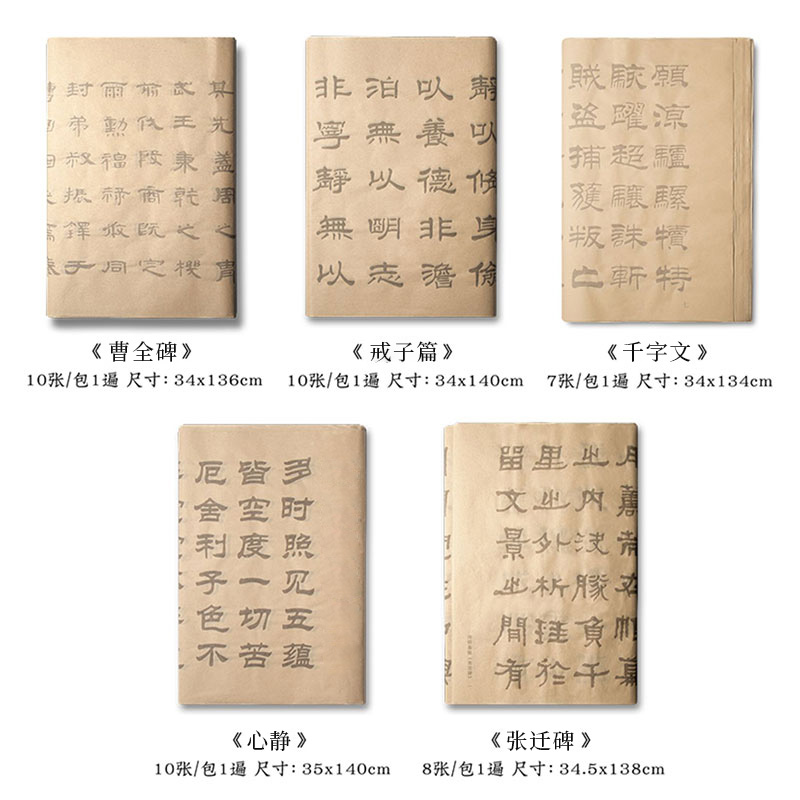 其先蓋周之胄
武王秉乾之機
翦伐殷商既定
爾勳福祿攸同
封弟叔振鐸于
靜以修身儉
以養德非澹
泊無以明志
非寧靜無以
願涼驢騾犢特
駭躍超驤誅斬
賊盜捕獲叛亡
七
《曹全碑》
10张/包1遍 尺寸：34x136cm
《戒子篇》
10张/包1遍 尺寸：34x140cm
《千字文》
7张/包1遍 尺寸：34x134cm
多时照见五蕴
皆空度一切苦
厄舍利子色不
用籌策在帷幕
之內決勝負千
里之外析珪於
留文景之間有
《心静》
10张/包1遍 尺寸：35x140cm
《张迁碑》
8张/包1遍 尺寸：34.5x138cm